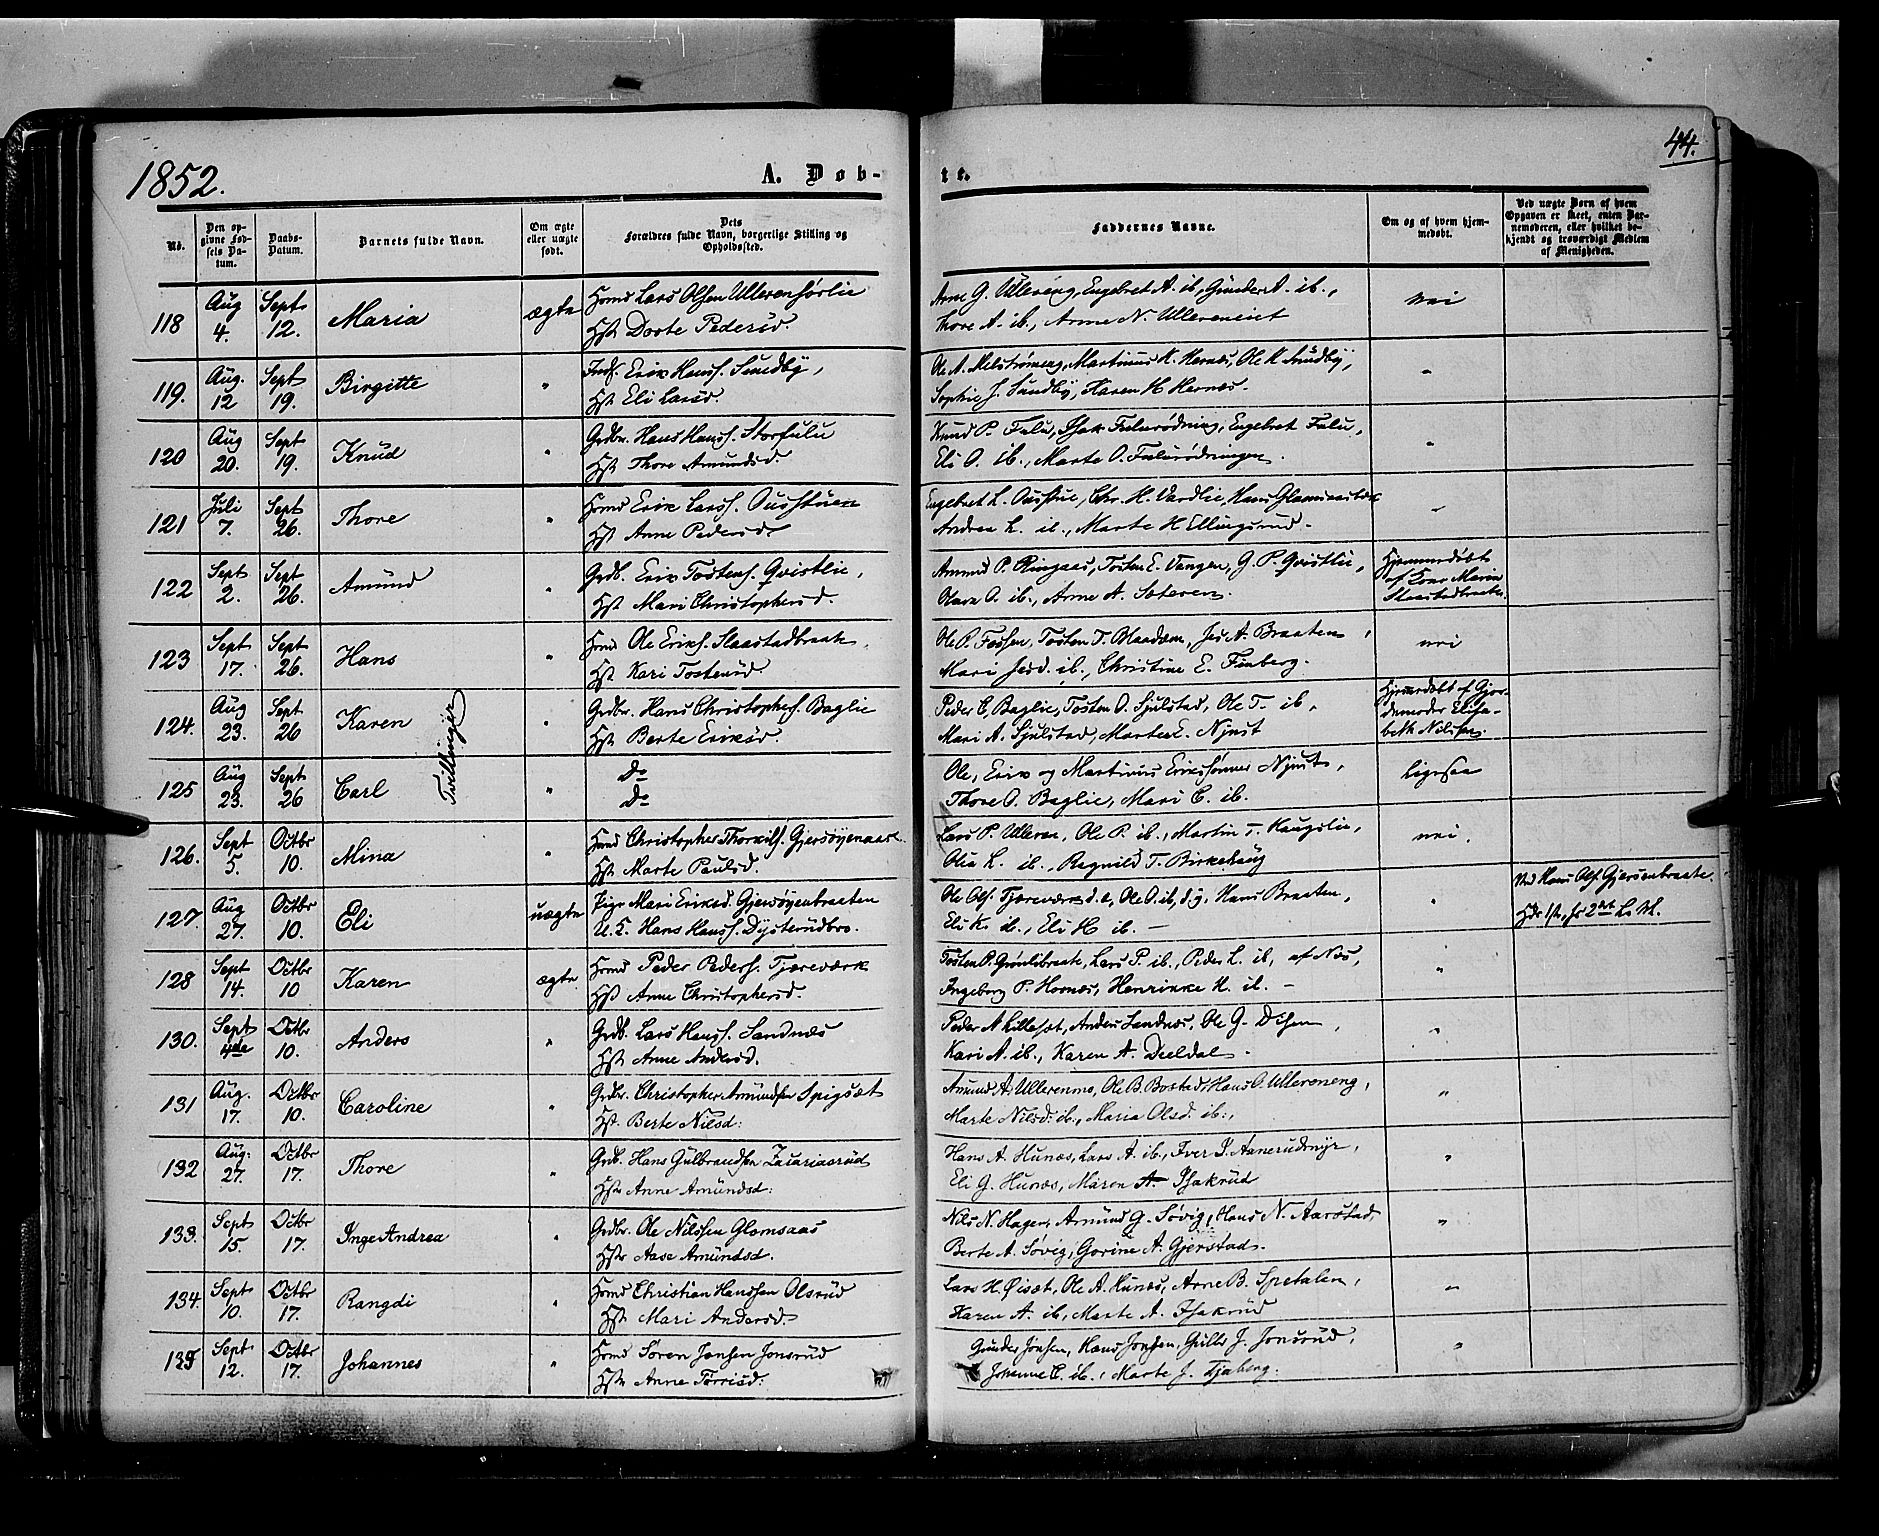 1852.
A. Døb-
te.
44.
No.
Den opgivne Fødsels Datum.
Daabs-Datum.
Barnets fulde Navn.
Om ægte eller uægte født.
Dets Forældres fulde Navn, borgerlige Stilling og Opholdssted.
Faddernes Navne.
Om og af hvem hjemmedøbt.
Ved uægte Børn af hvem Opgaven er skeet, enten Barnemoderen, eller hvilket bekjendt og troværdigt Medlem af Menigheden.
118 Aug 4. Sept 12. Maria ægte Hmd Lars Olsen Ullerenhørlie
Hst. Dorte Pedersd.
Arne G. Ullereng, Engebret A. ib, Gunder A. ib.,
Thore A. ib., Arne N. Ullereneiet
nei
119. Aug. 12 Sept 19. Birgitte " Inds. Erik Hanss. Sundby,
Hst. Eli Larsd.
Ole A. Melstrømeng, Martinus K. Hernæs, Ole K Sundby,
Sophie J. Sundby, Karen H Hernæs.
"
120 Aug 20. Sept 19. Knud " Grdbr. Hans Hanss. Storfulu
Hst. Thore Amundsd.
Knud P. Fulu, Isak Fulurødning, Engebret Fulu,
Eli O. ib., Marte O. Fulurødningen.
"
121 Juli 7. Sept 26. Thore " Hmd Erik Larss. Ousstuen
Hst Anne Pedersd.
Engebret L. Ousstue, Chr. H. Vardlie, Hans
Andrea L. ib., Marte H Ellingsrud.
"
122 Sept 2. Sept 26. Amund " Grdb. Erik Tostens. Qvistlie,
Hst. Mari Christophersd.
Amund P. Ringaas, Tosten E. Vangen, G. P. Qvistlie,
Olava O. ib., Arne A. Sæteren.
Hjemmedøbt
af Kone Maria
Slaastadbraaten
123 Sept 17. Sept 26. Hans " Hmd Ole Eriks. Slaastadbraate,
Hst. Kari Tostensd.
Ole P. Fossen, Tosten T. Blaadom, Jes. A. Braaten,
Mari Jesd. ib., Christine E. Finberg.
nei
124. Aug 23. Sept. 26 Karen " Grdbr. Hans Christophers. Baglie
Hst. Berte Eriksd.
Peder C. Baglie, Tosten O. Sjulstad, Ole T. ib,
Mari A. Sjulstad, Marte E. Njust
Hjemedøbt af Gjor-
demoder Elisa-
beth Nilsen.
Tvillinger
125 Aug 23. Sept 26 Carl " Do
Do
Ole, Erik og Martinus Erikssønner Njust,
Thore O. Baglie, Mari C. ib.
ligesaa
126. Sept 5. Octbr 10. Mina " Hmd Christopher Thorkils. Gjersøyenaas
Hst. Marte Paulsd.
Lars P. Ulleren, Ole P. ib., Martin T. Haugslie,
Olia L. ib., Ragnild T. Birkehaug
nei.
127. Aug 27. Octbr 10. Eli uægte Pige Mari Eriksd. Gjersøyenbraaten
U.K. Hans Hanss. Dysterudbro.
Ole Ols. Tjæreværk d.e, Ole O. ib, d.y, Hans Braaten,
Eli K. ib., Eli H ib. —
"
Ved Hans Ols. Gjersøenbraate.
128 Sept 14. Octbr 10 Karen ægte Hmd Peder Peders. Tjæreværk
Hst Anne Christophersd.
Tosten P. Grønlibraate, Lars P. ib., Peder L. ib, af Næs,
Ingeborg P. Hornæs, Henrikke H. ib. —
"
130. Sept 4de Octbr 10. Anders " Grdb. Lars Hanss. Sandnæs
Hst Anne Andersd.
Peder A Lillesæt, Anders Sandnæs, Ole G. Disen,
Kari A. ib., Karen A. Deeldal.
"
131 Aug. 17. Octbr 10. Caroline " Grdbr. Christopher Amundsen Spigsæt
Hst. Berte Nilsd:
Amund A. Ullerenmo, Ole B. Bostad, Hans O. Ullereneng,
Marte Nilsd: ib., Maria Olsd. ib.,
"
132 Aug: 27. Octbr 17. Thore " Grdb. Hans Gulbrandsen Zacariasrud
Hst. Anne Amundsd:
Hans A. Hunæs, Lars A. ib., Iver S. Aanerudmyr,
Eli G. Hunæs, Maren A Isakrud
"
133. Sept 15. Octbr 17. Inge Andrea " Grdbr. Ole Nilssen Glomsaas
Hst. Aase Amundsd.
Nils N. Hagen, Amund G. Søvig, Hans N. Aarstad,
Berte A. Søvig, Gorine A. Gjerstad.
"
134. Sept 10. Octbr 17. Rangdi " Hmd Christian Hanssen Olsrud
Hst Mari Andersd.
Lars H. Øisæt, Ole A. Hunæs, Arne B. Spetalen,
Karen A. ib, Marte A. Isakrud
"
135 Sept 12. Octbr 17. Johannes " Hmd Søren Jonsen Jonsrud
Hst. Anne Torrisd:
Gunder Jonsen, Hans Jonsen, Gulbr. J. Jonsrud,
Johanne C. ib., Marte J. Tjaberg.
"